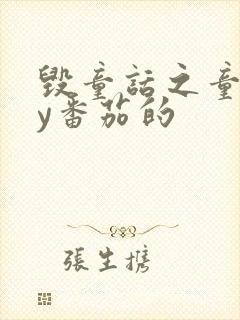 毁童话之童
y番茄的
張生攜